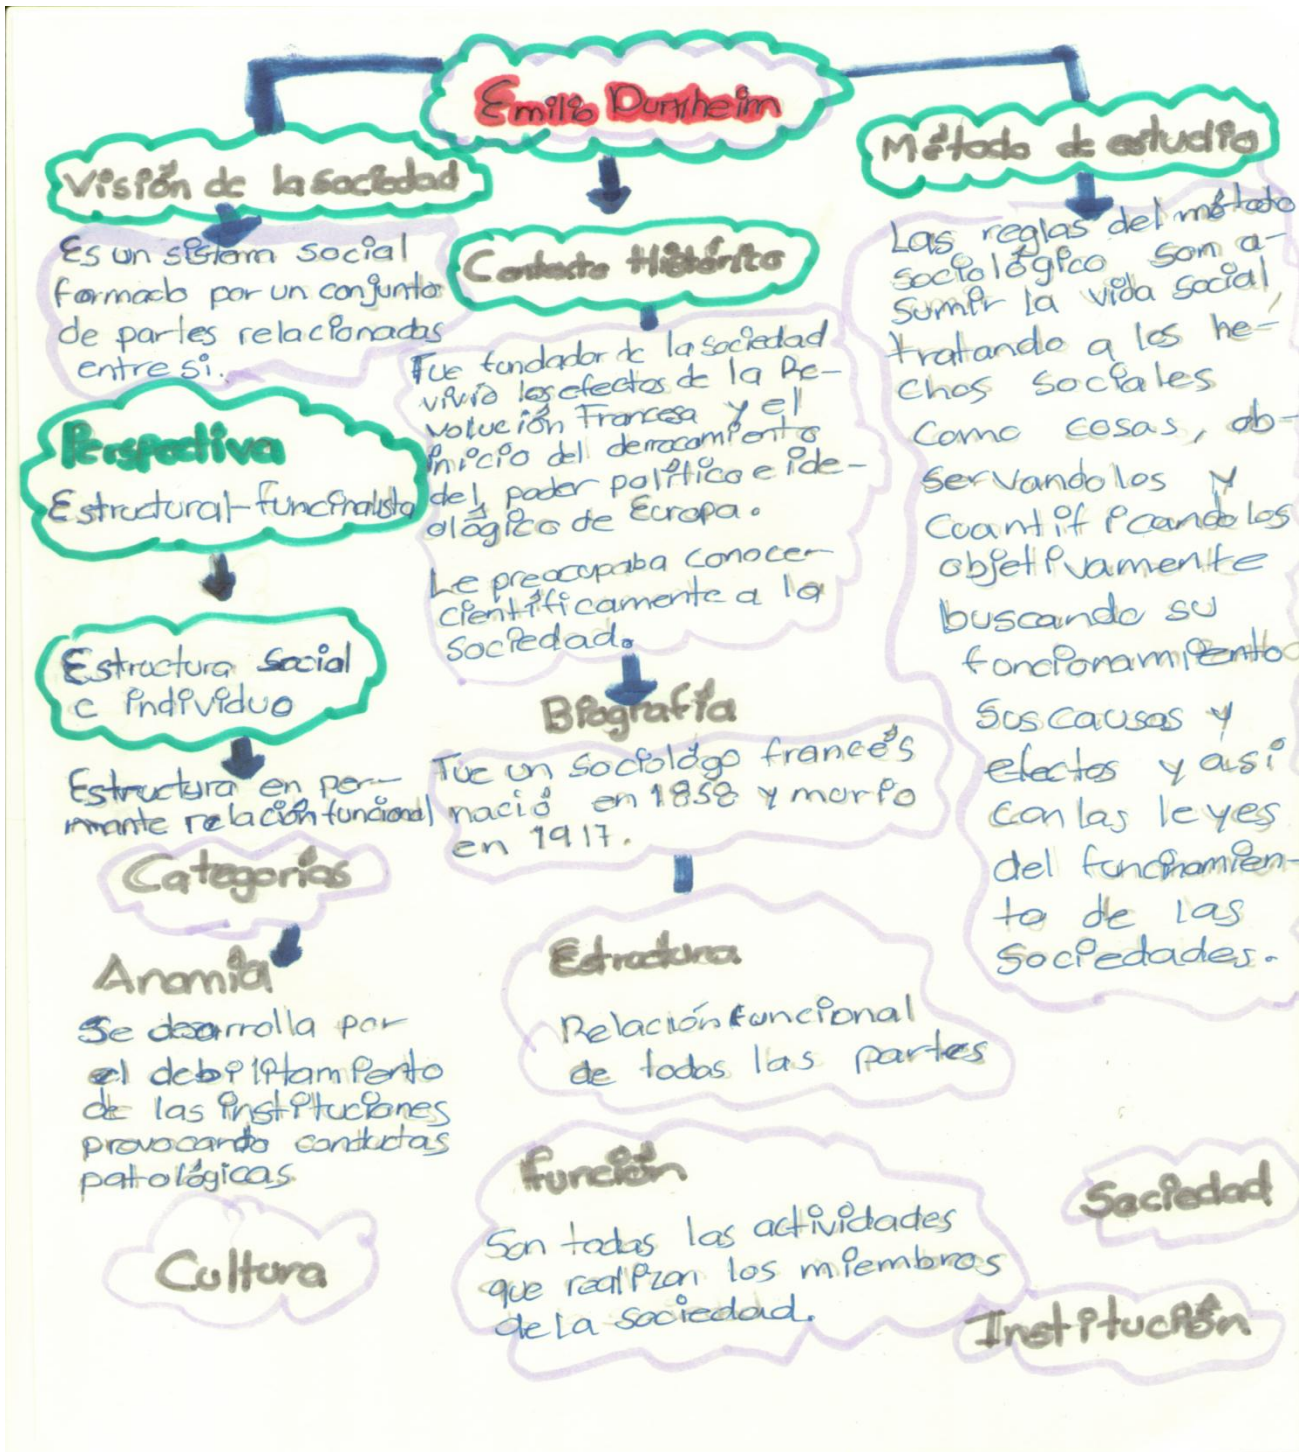 Emilio Durkheim
Visión de la sociedad
Es un sistem social
formado por un conjunto
de partes relacionadas
entre si.
Perspectiva
Estructural-funcinalista
Estructura social
e individuo
Estructura en per-
mante relación funcional
Categorías
Anomia
Se desarrolla por
el debilitamiento
de las instituciones
provocando conductas
patológicas
Cultura
Contexto Histórico
Fue fundador de la sociedad
vivió los efectos de la Re-
volución Francesa y el
inicio del derrocamiento
del poder político e ide-
ológico de Europa.
Le preocupaba conocer
científicamente a la
sociedad.
Biografía
Fue un sociológo francés
nació en 1858 y murio
en 1917.
Estructura
Relación funcional
de todas las partes
Función
Son todas las actividades
que realizan los miembros
de la sociedad.
Método de estudio
Las reglas del método
sociológico son a-
sumir la vida social,
tratando a los he-
chos sociales
como cosas, ob-
servandolos y
cuantificandolos
objetivamente
buscando su
funcionamiento
sus causas y
efectos y así
con las leyes
del funcinamien-
to de las
sociedades.
Sociedad
Institución